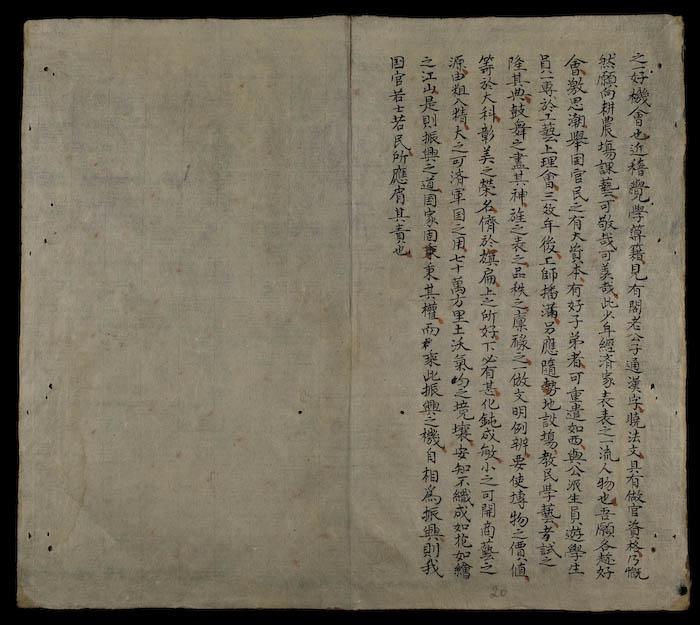 之一好機會也近稽覺學簿籍見有閣老公子通漢字曉法文具有做官資格乃慨
然願向耕農塲課藝可敬哉可美哉此少年經濟家表表之一流人物也吾願各趍好
會激思潮舉国官民之有大資本有好子弟者可重遣如西與公派生員遊學生
員一專於工藝上理會三数年後工師播滿另應隨勢地設塲教民學藝考試之
隆其典鼓舞之盡其神旌之表之品秩之廪祿之一做文明例辦要使博物之價值
等於大科彰美之榮名儕於旗扁上之所好下必有甚化鈍成敏小之可開商藝之
源由粗入精大之可済軍国之用七十萬方里土沃氣均之境壤安知不纖成如花如繪
之江山是則振興之道国家固秉其權而乘此振興之機自相爲振興則我
国官若士若民所應肩其責也
20